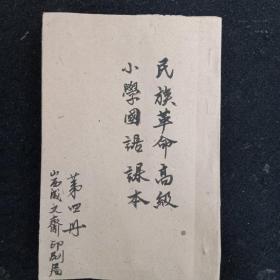 民族革命高級
小學國語課本
第四册
山西成文齋印刷局